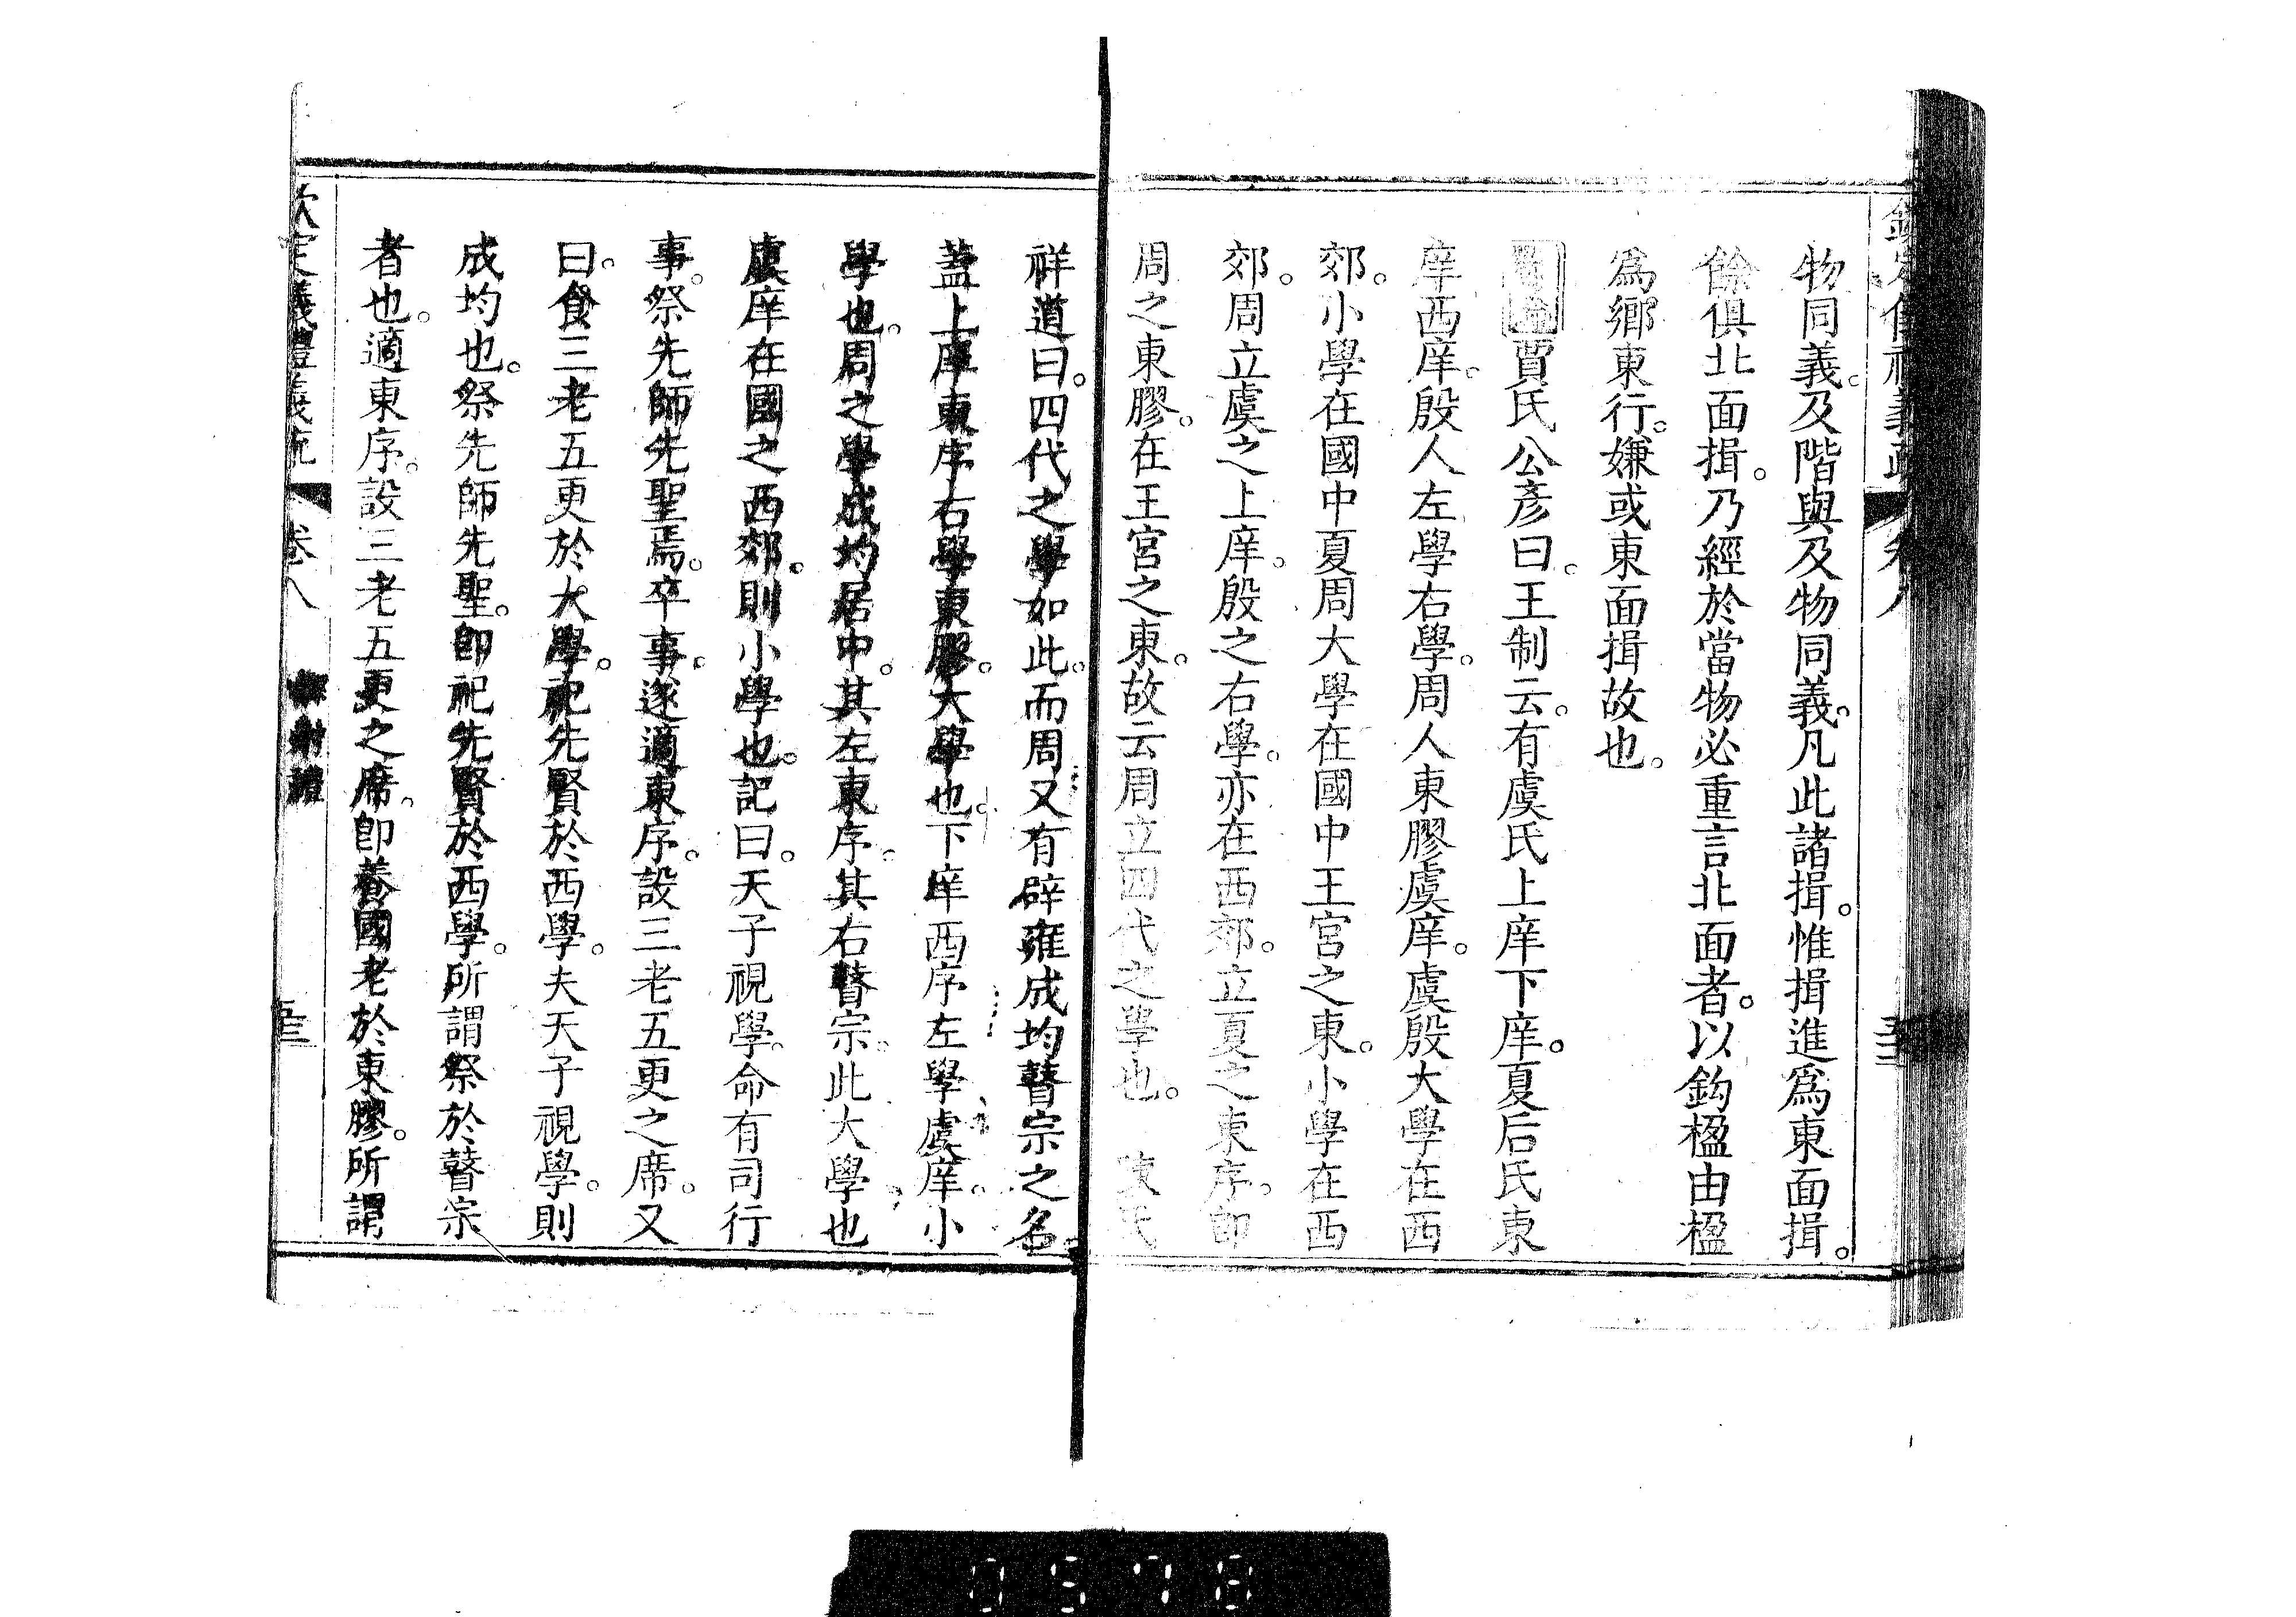 物同義。及階與及物同義。凡此諸揖。惟揖進爲東面揖。
餘俱北面揖。乃經於當物必重言北面者。以鈎楹由楹
爲鄉東行。嫌或東面揖故也。
賈氏公彥曰。王制云。有虞氏上庠下庠。夏后氏東
庠西庠。殷人左學右學。周人東膠虞庠。虞殷大學在西
郊。小學在國中夏周大學在國中王宮之東。小學在西
郊。周立虞之上庠。殷之右學。亦在西郊。立夏之東序。即
周之東膠。在王宮之東。故云周立四代之學也。 陳氏
祥道曰。四代之學如此。而周又有辟雍成均瞽宗之名。
蓋上庠東序右學東膠。大學也。下庠西序左學虞庠。小
學也。周之學成均居中。其左東序。其右瞽宗。此大學也
虞庠在國之西郊。則小學也。記曰。天子視學。命有司行
事。祭先師先聖焉。卒事。遂適東序。設三老五更之席。又
曰。食三老五更於大學。祀先賢於西學。夫天子視學。則
成均也。祭先師先聖。卽祀先賢於西學。所謂祭於瞽宗
者也。適東序。設三老五更之席。卽養國老於東膠。所謂
欽定儀禮義疏 卷八 鄉射禮 五三
0578